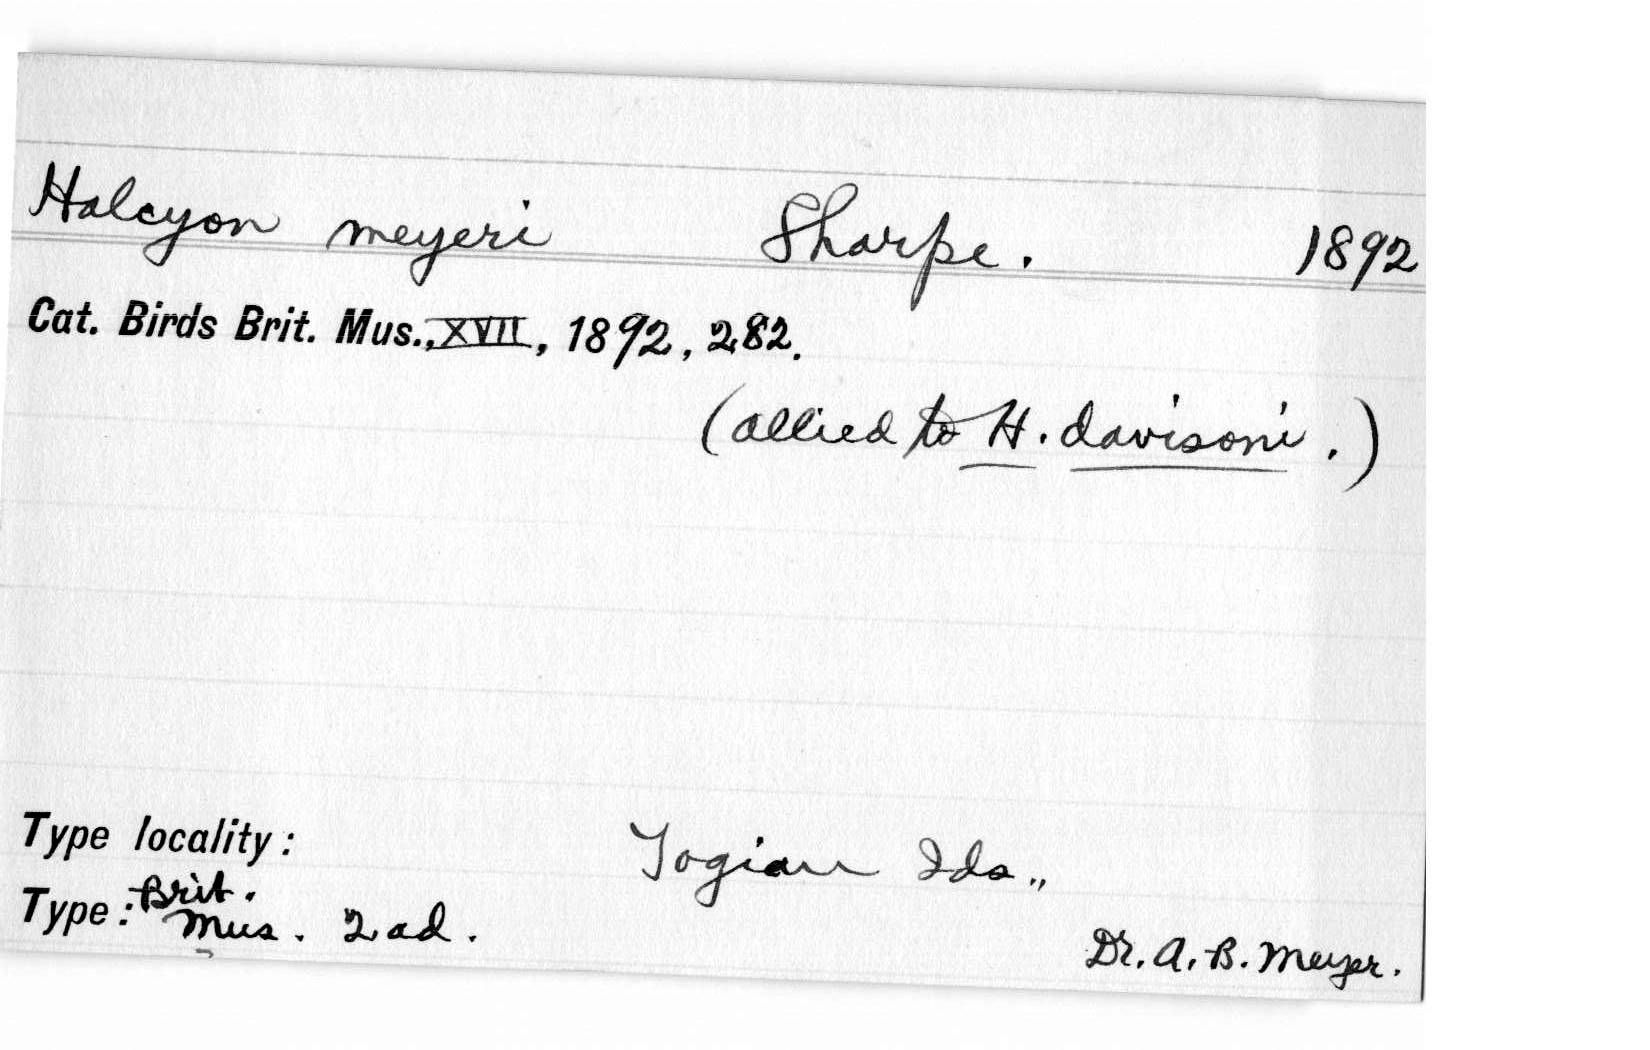 Halcyon meyeri Sharpe. 1892
Cat. Birds Brit. Mus., XVII, 1892, 282.
(allied to H. davisoni.)
Type locality: Togian Ids.,
Type: Brit. Mus. 2 ad.
Dr. A. B. Meyer.